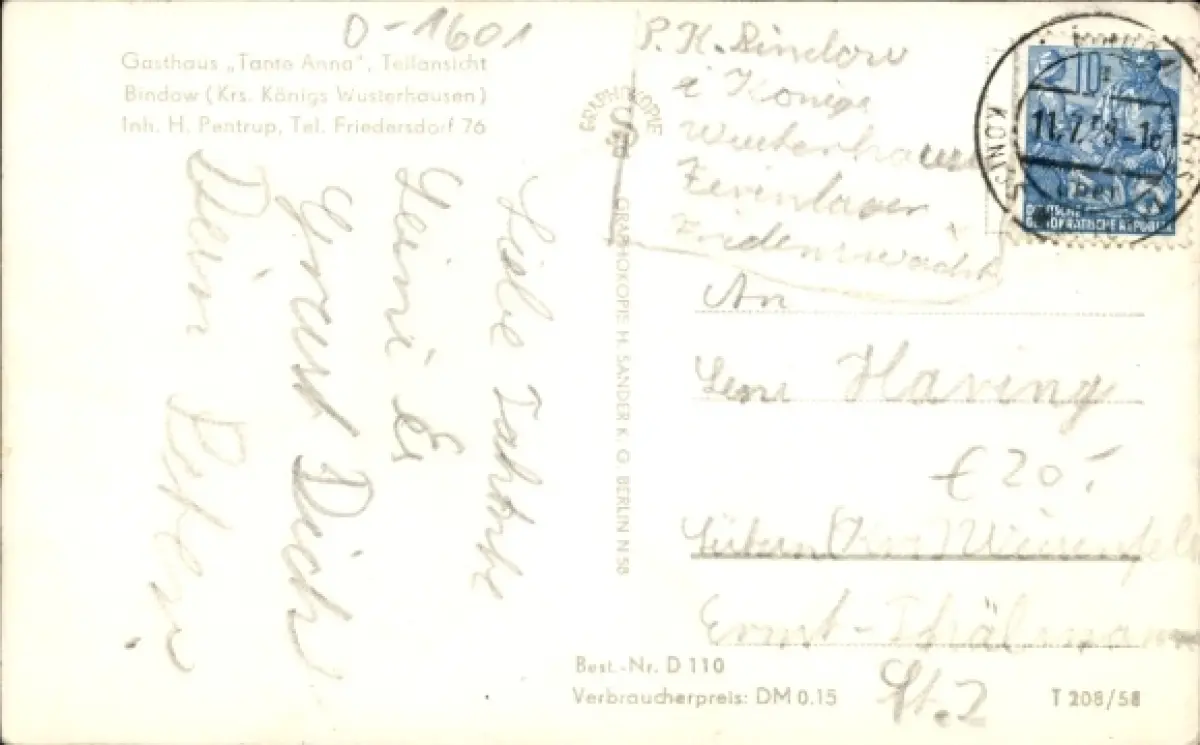 O-1601
Gasthaus „Tante Anna", Teilansicht
Bindow (Krs. Königs Wusterhausen)
Inh. H. Pentrup, Tel. Friedersdorf 76
Liebe
Grüst Dich
Dein Peter
GRAPHOKOPIE
GRAPHOKOPIE H. SANDER K. G. BERLIN N 58
P. K. Bindow
i Königs
Wusterhausen
Ferienlager
Friedenswacht
10
11.7.58-1
über
KÖNIGS
DEUTSCHE
DEMOKRATISCHE REPUBLIK
An
Having
€ 20.-
(Krs) Weissenfels
Ernst-Thälmann
St. 2
Best.-Nr. D 110
Verbraucherpreis: DM 0.15
T 208/58